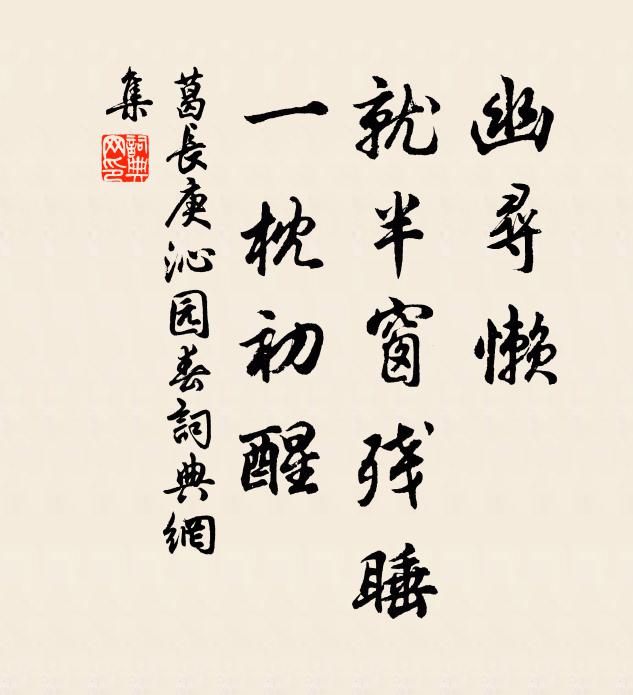 幽尋懶
就半窗残睡
一枕初醒
葛長庚沁园春詞典網
集
詞典网印